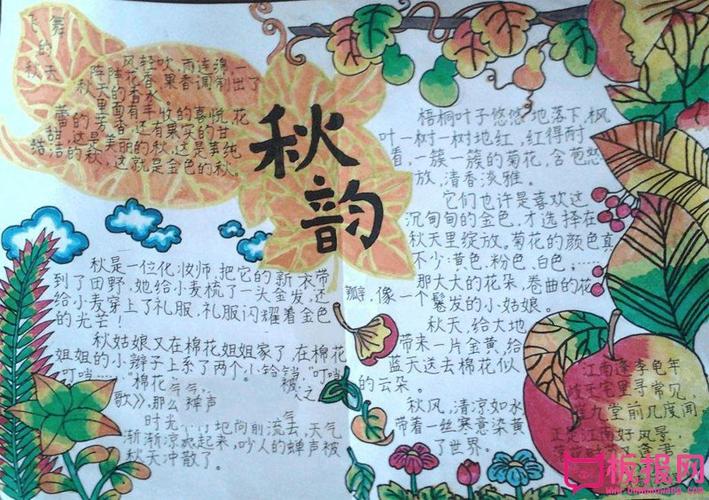 飞舞
的
秋天
风轻吹,雨连绵,一
阵阵花香,果香调制出了
秋天的香水。
里面有丰收的喜悦,花
蕾的芳香,还有果实的甘
甜,这是美丽的秋,这是
洁的秋,这就是金色的秋。
秋·韵
秋是一位化妆师,把它的新衣带
到了田野,她给小麦梳了一头金发,还
给小麦穿上了礼服,礼服闪耀着金色
的光芒!
秋姑娘又在棉花姐姐家了,在棉花
姐姐的小辫子上系了两个小铃铛,"叮铛
"叮铛……"棉花
歌》,那么蝉声
时光
地向前流去,天气
渐渐凉爽起来,吵人的蝉声被
秋天冲散了。
梧桐叶子悠悠地落下,枫
叶一树一树地红,红得耐
看,一簇一簇的菊花,含苞
放,清香淡雅。
它们也许是喜欢这
沉甸甸的金色,才选择在
秋天里绽放,菊花的颜色真
不少:黄色,粉色,白色……
那大大的花朵,卷曲的花
瓣,像一个鬈发的小姑娘。
秋天,给大地
带来一片金黄,给
蓝天送去棉花似
的云朵。
秋风,清凉如水
带着一丝寒意染黄
了世界。
江南逢李龟年
岐王宅里寻常见
崔九堂前几度闻
正是江南好风景
板报网